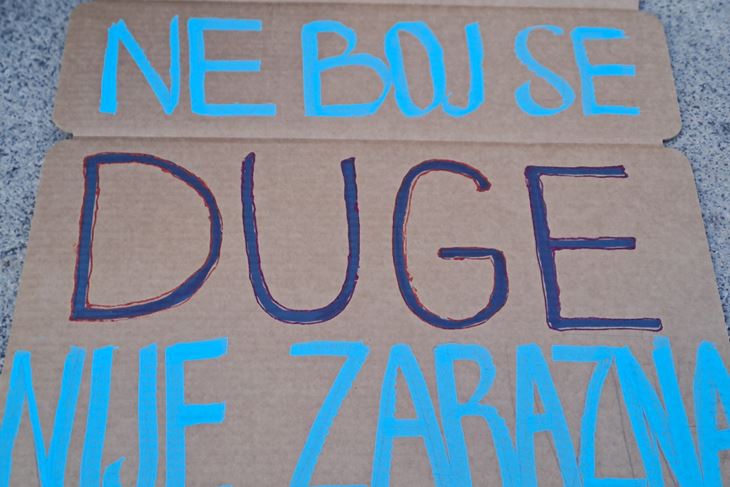 NE BOJ SE
DUGE
NIJE ZARAZNA